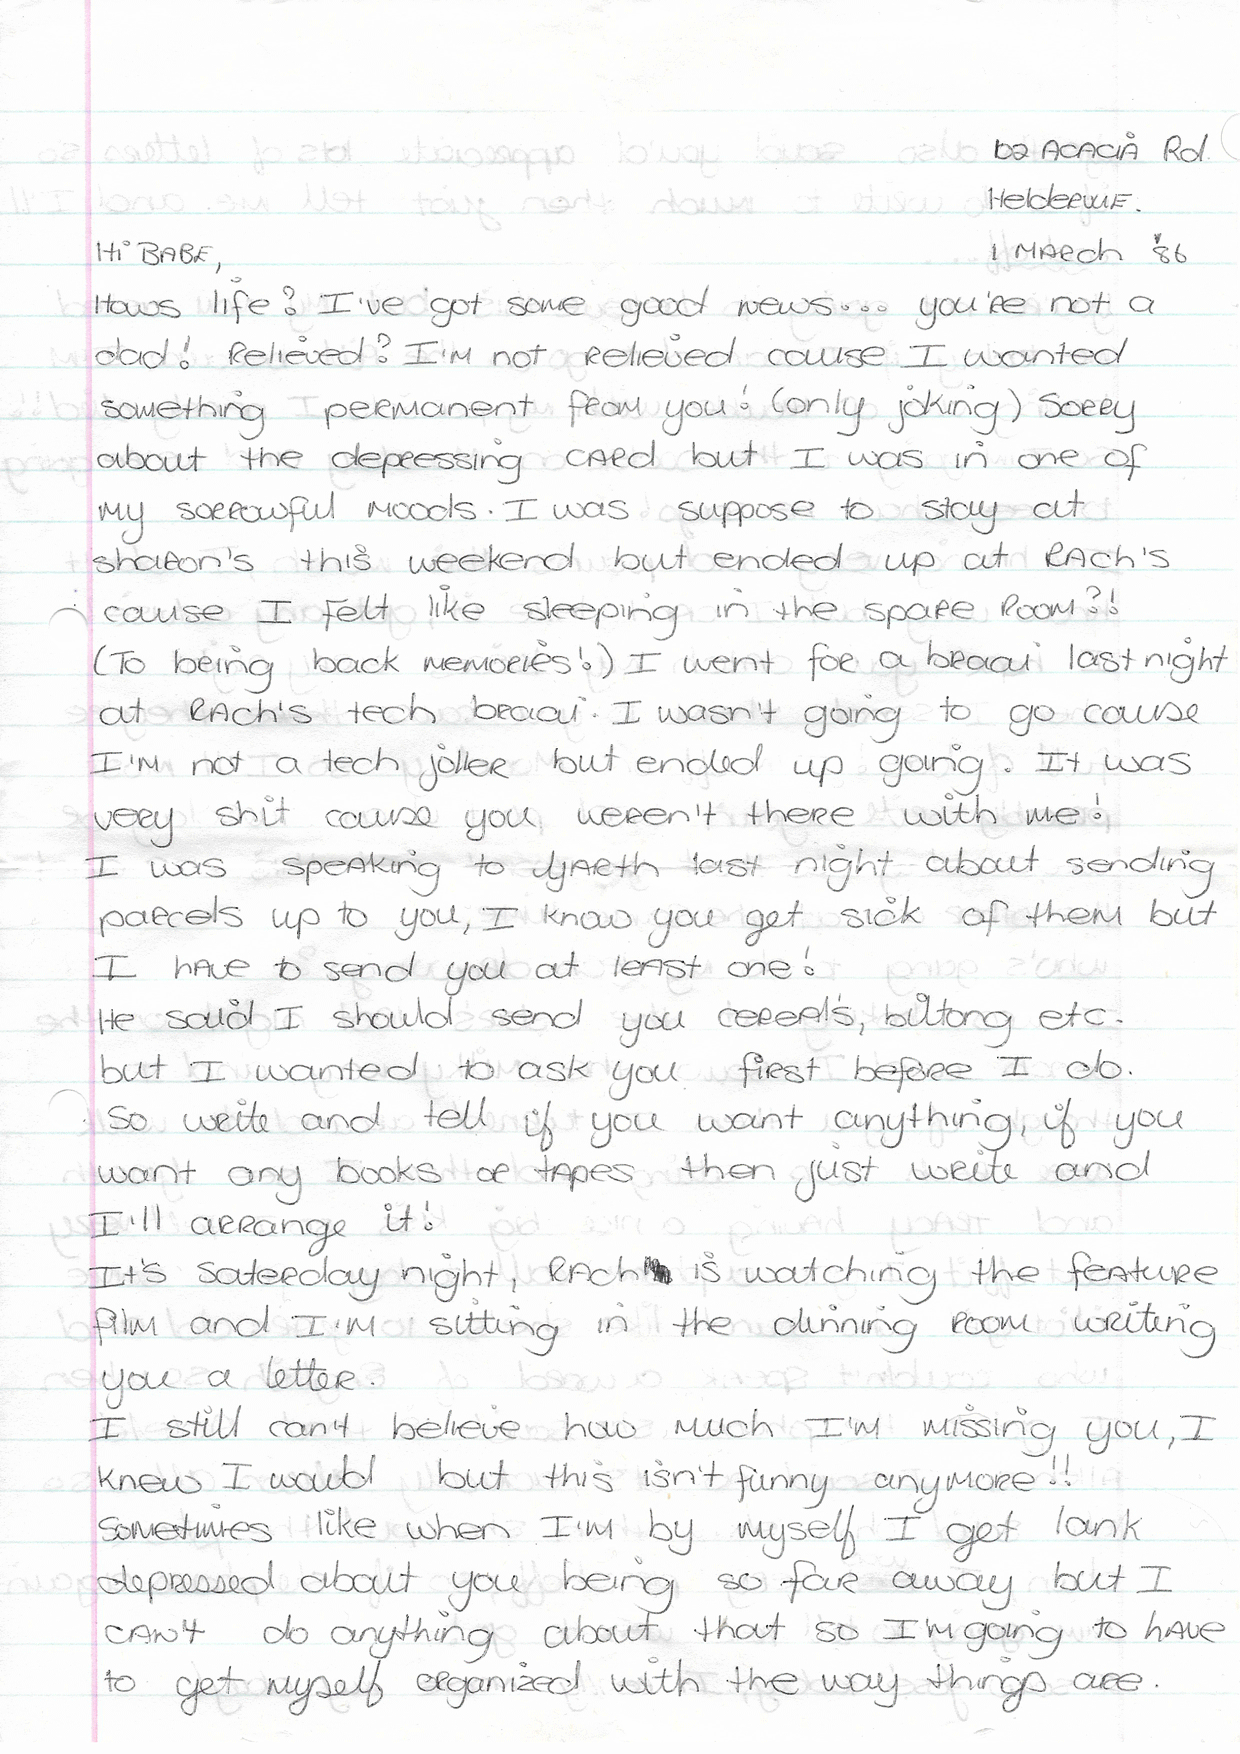 102 ACACIA Rd.
Heldervue.
Hi BABE,
1 MARch '86
Hows life? I've got some good news... you're not a
dad! Relieved? I'm not relieved cause I wanted
something permanent from you! (only joking) Sorry
about the depressing card but I was in one of
my sorrowful moods. I was suppose to stay at
sharon's this weekend but ended up at RAch's
cause I felt like sleeping in the spare room?!
(To being back memories!) I went for a braai last night
at RAch's tech braai. I wasn't going to go cause
I'm not a tech joller but ended up going. It was
very shit cause you weren't there with me!
I was speaking to GARth last night about sending
parcels up to you, I know you get sick of them but
I have to send you at least one!
He said I should send you cereals, biltong etc.
but I wanted to ask you first before I do.
So write and tell if you want anything, if you
want any books or tapes then just write and
I'll arrange it!
It's Saterday night, RAch is watching the feature
film and I'm sitting in the dinning room writing
you a letter.
I still can't believe how much I'm missing you, I
knew I would but this isn't funny anymore!!
Sometimes like when I'm by myself I get lank
depressed about you being so far away but I
can't do anything about that so I'm going to have
to get myself organized with the way things are.